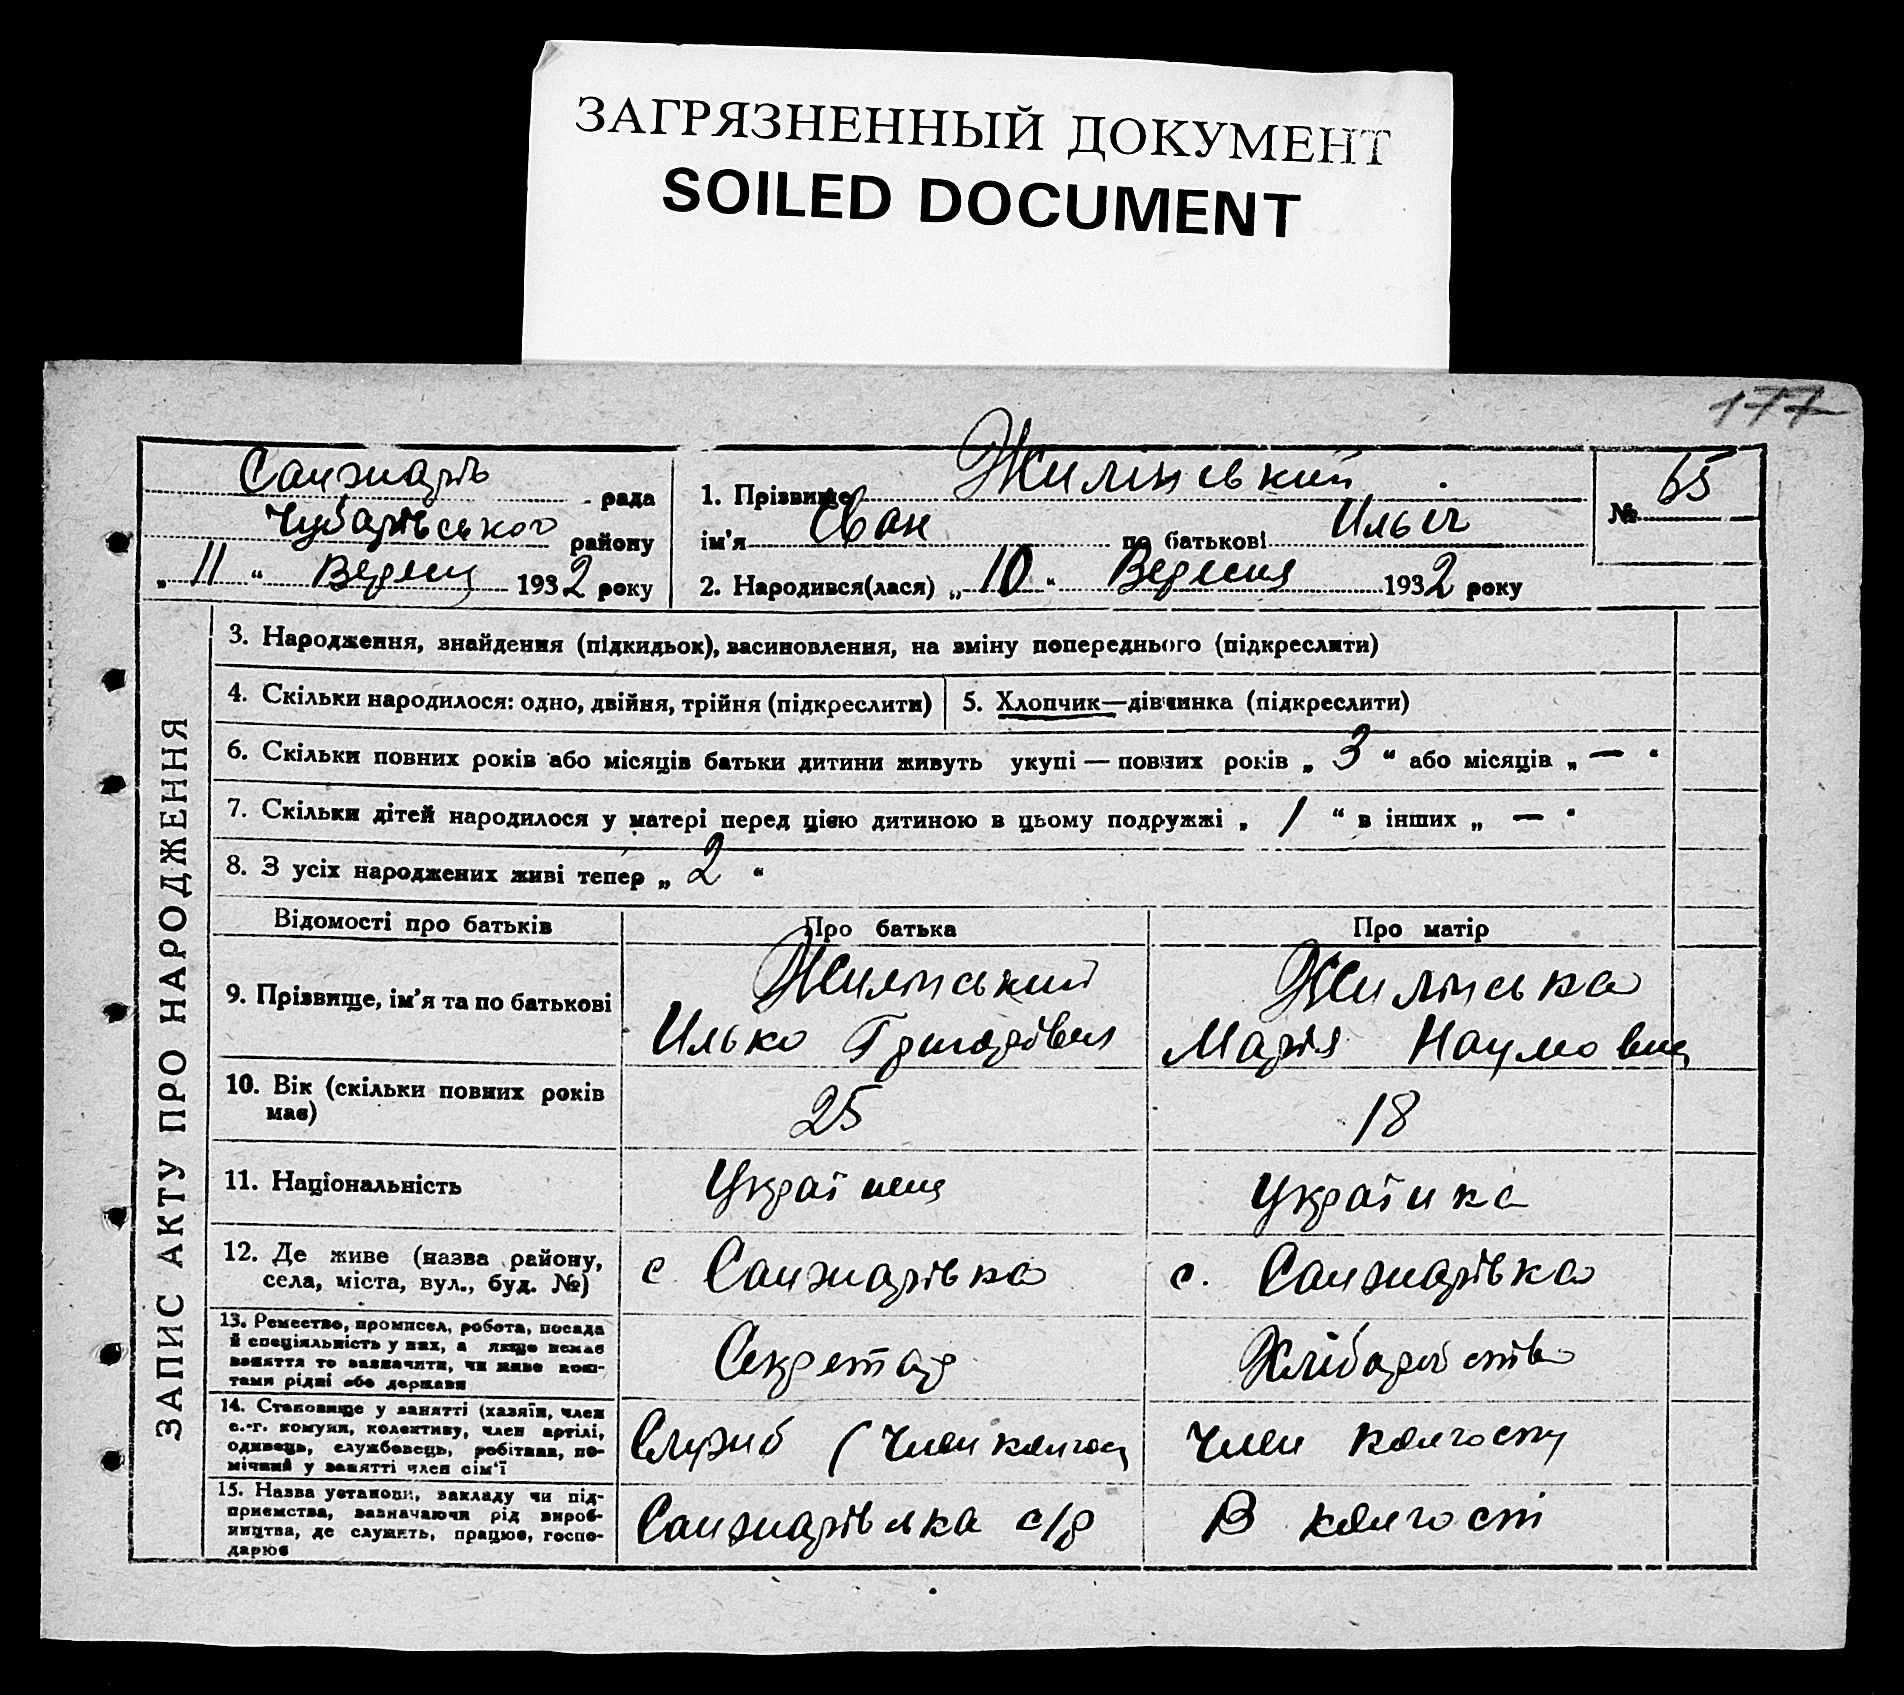 ЗАГРЯЗНЕННЫЙ ДОКУМЕНТ
SOILED DOCUMENT
177
ЗАПИС АКТУ ПРО НАРОДЖЕННЯ
Санжарів рада
Чубарівського району
„ 11 “ Вересня 1932 року
1. Прізвище Жилінський
ім'я Іван по батькові Ильич
2. Народився(лася) „ 10 “ Вересня 1932 року
№ 65
3. Народження, знайдення (підкидьок), васиновлення, на вміну попереднього (підкреслити)
4. Скільки народилося: одно, двійня, трійня (підкреслити)
5. Хлопчик—дівчинка (підкреслити)
6. Скільки повних років або місяців батьки дитини живуть укупі — повних років „ 3 “ або місяців „ — “
7. Скільки дітей народилося у матері перед цією дитиною в цьому подружжі „ 1 “ в інших „ — “
8. З усіх народжених живі тепер „ 2 “
Відомості про батьків Про батька Про матір
9. Прізвище, ім'я та по батькові
Жилінський
Илько Григорівич
Жилінська
Марія Наумовна
10. Вік (скільки повних років
має)
25
18
11. Національність
Українец
Українка
12. Де живе (назва району,
села, міста, вул., буд. №)
с. Санжарівка
с. Санжарівка
13. Ремество, промисел, робота, посада
й спеціяльність у них, а якщо немає
заняття то зазначити, чи живе кош-
тами рідні або держави
Секретар
Хліборобство
14. Становище у занятті (хазяїн, член
с.-г. комуни, колективу, член артілі,
одинець, службовець, робітник, по-
мічний у занятті член сім'ї
Служб (член колгосп
Член колгоспу
15. Назва установи, закладу чи під-
приємства, зазначаючи рід вироб-
ництва, де служить, працює, госпо-
дарює
Санжарівска с/р
В колгоспі